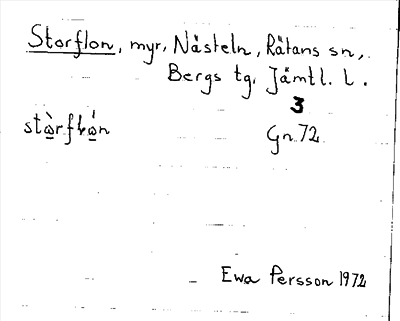 Storflon, myr, Nästeln, Rätans sn,
Bergs tg, Jämtl. l.
3
stò̲rfló̲n Gn 72
Ewa Persson 1972